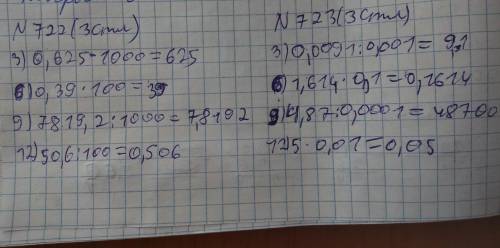 N 722 (3 стл)
3) 0,625 · 1000 = 625
6) 0,39 · 100 = 39
9) 7819,2 : 1000 = 7,8192
12) 50,6 : 100 = 0,506
N 723 (3 стл)
3) 0,0091 : 0,001 = 9,1
6) 1,614 · 0,1 = 0,1614
9) 4,87 : 0,0001 = 48700
12) 5 · 0,01 = 0,05